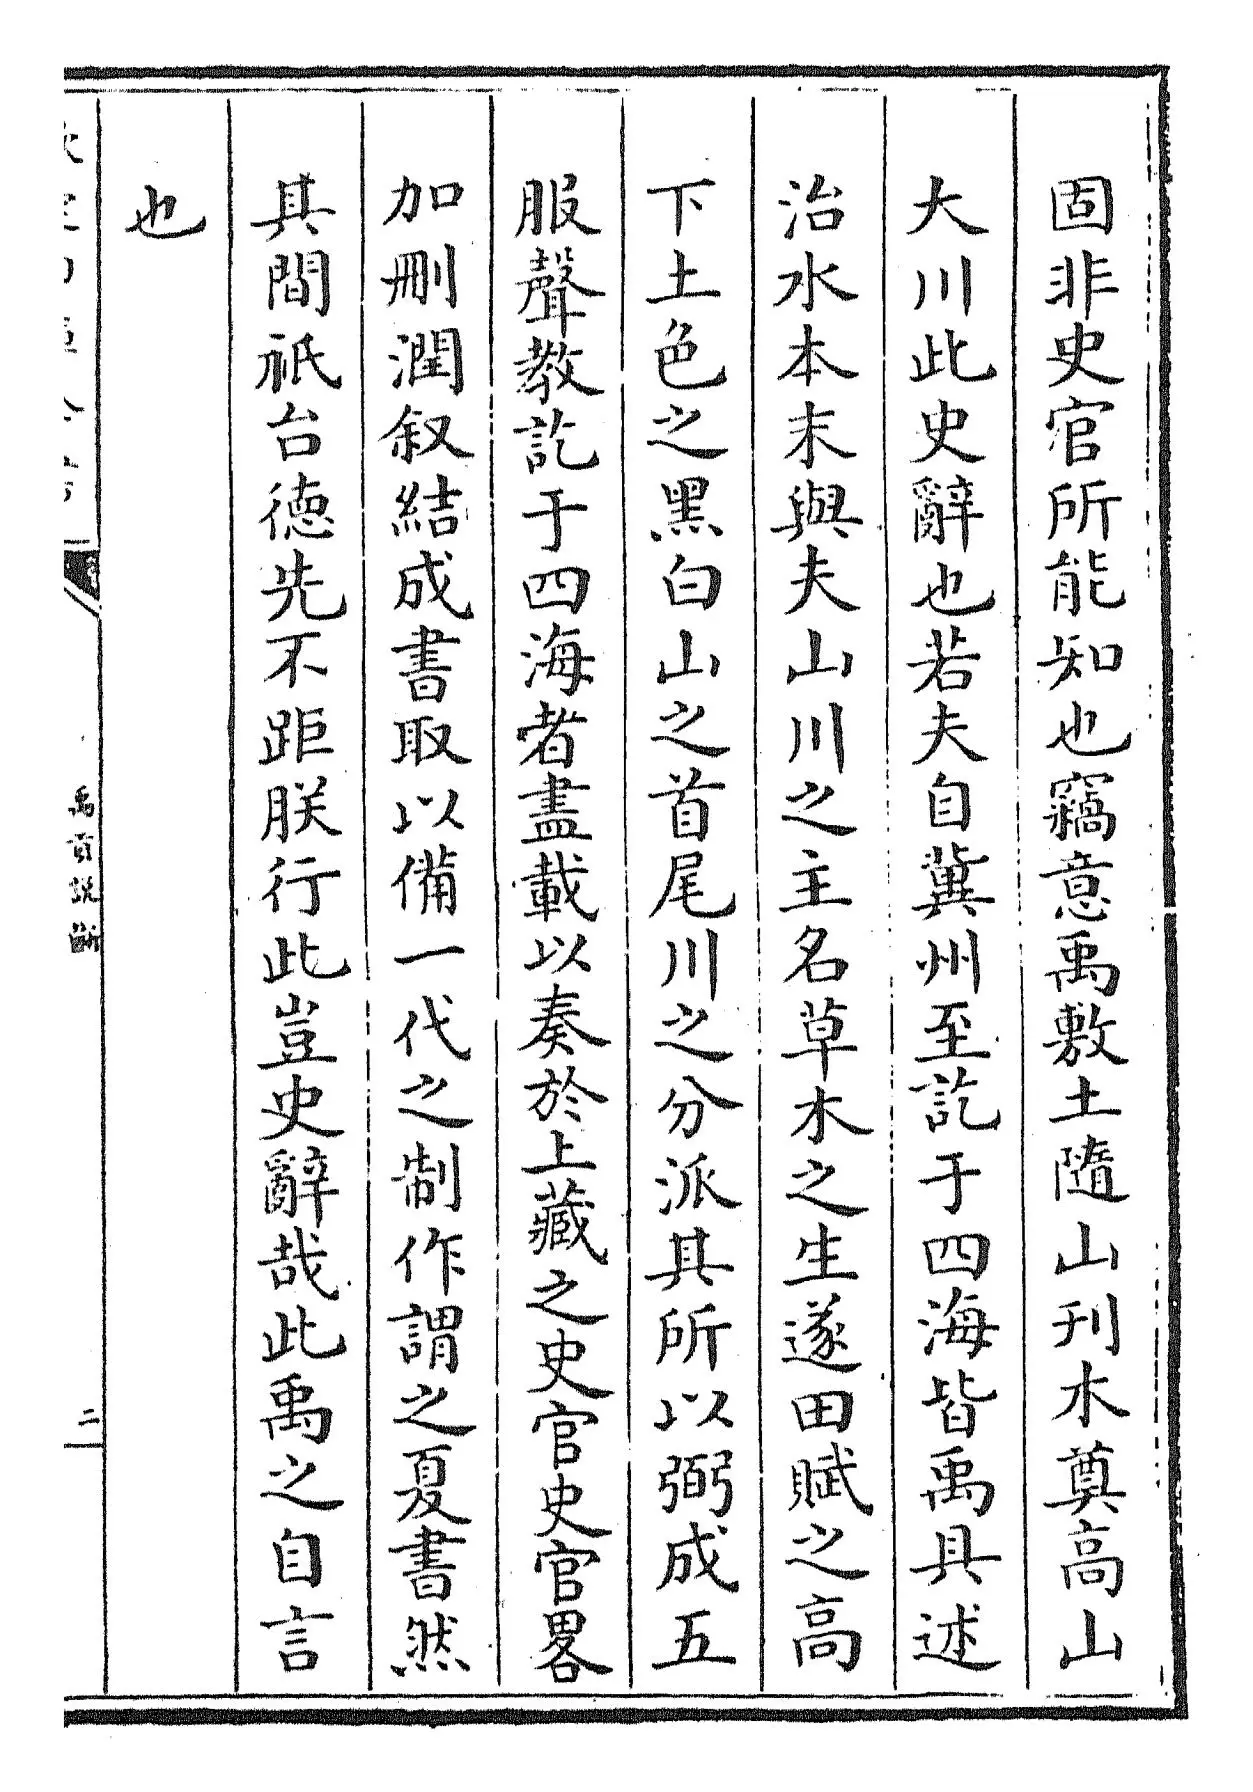 固非史官所能知也竊意禹敷土隨山刋木奠高山
大川此史辭也若夫自冀州至訖于四海皆禹具述
治水本末與夫山川之主名草木之生遂田賦之高
下土色之黑白山之首尾川之分派其所以弼成五
服聲教訖于四海者盡載以奏於上藏之史官史官畧
加刪潤叙結成書取以備一代之制作謂之夏書然
其間祇台德先不距朕行此豈史辭哉此禹之自言
也
禹貢說斷
二